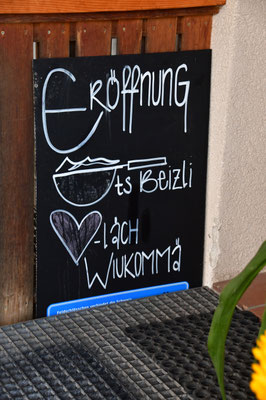 Eröffnung
Üts Beizli
-lach
Wiukommä